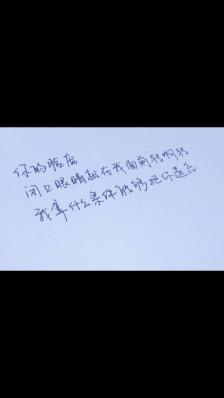 你的脸庞
闭上眼睛就在我面前转啊转
我拿什么条件能够把你遗忘